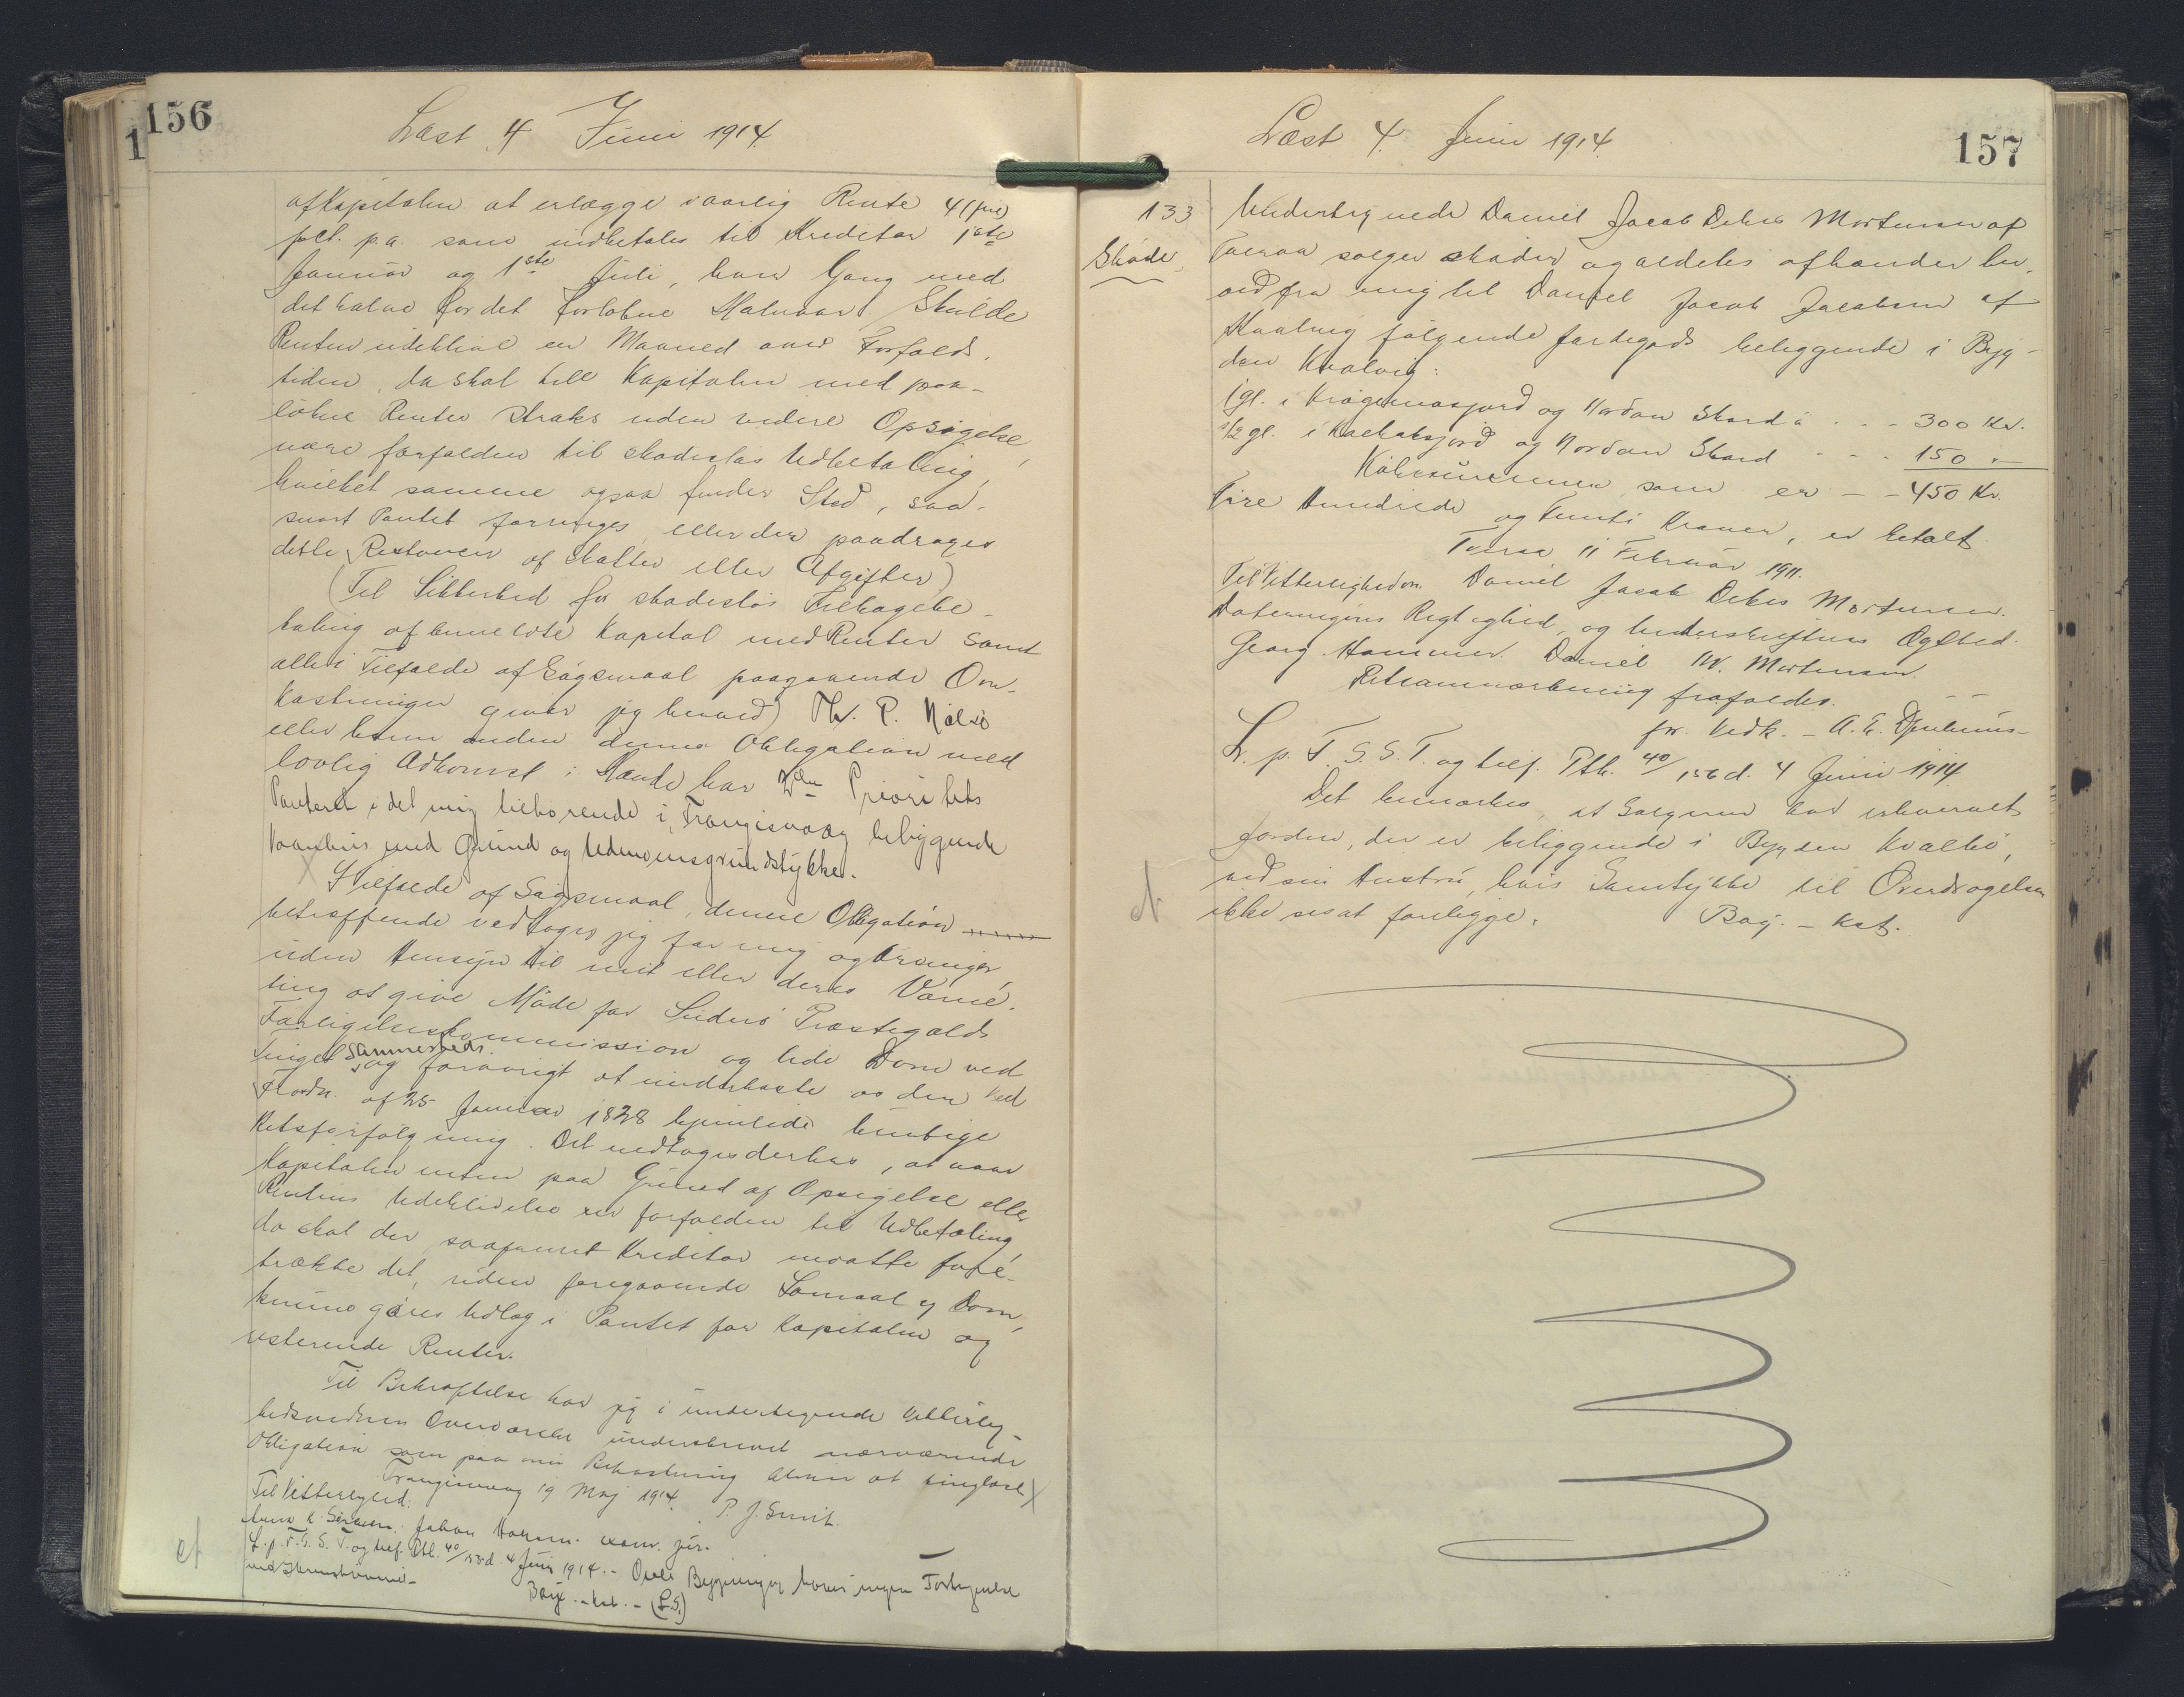 156
1
Læst 4 Juni 1914.
af Kapitalen at erlægge i aarlig Rente 4 (fire)
pct. p.a. som indbetales til Kreditor 1ste
Januar og 1ste Juli, hver Gang med
det halve for det forløbne Halvaar. Skulde
Renten udeblive en Maaned over Forfalds-
tiden, da skal hele Kapitalen med paa-
løbne Renter straks uden videre Opsigelse
være forfalden til skadesløs Udbetaling,
hvilket samme ogsaa finder Sted, saa-
snart Pantet forringes eller der paadrages
dette Restancer af Skatter eller Afgifter)
(Til Sikkerhed for skadesløs Tilbagebe-
taling af anmeldte Kapital med Renter samt
alle i Tilfælde af Søgsmaal paagaaende Om-
kostninger giver jeg herved) Th. P. Nolsø
eller hvem anden denne Obligation med
lovlig Adkomst i Hænde har 2den Prioritets
Panteret i det mig tilhørende i Trangisvaag beliggende
Vaanhus med Grund og Udenomsgrundstykke.
X I Tilfælde af Søgsmaal, denne Obligation
betræffende vedtager jeg for mig og Arvinger
uden Hensyn til mit eller deres Værne-
ting at give Møde for Suderø Præstegælds
Forligelseskommission og lide Dom ved
Tinget sammesteds og forøvrigt at underkaste os den ved
Frordn. af 25 Januar 1828 hjemlede hurtige
Retsforfølgning. Det vedtages derhos, at naar
Kapitalen enten paa Grund af Opsigelse eller
Rentens Udeblivelse er forfalden til Udbetaling,
da skal der, saafremt Kreditor maatte fore-
trække det, uden foregaaende Lovmaal og Dom,
kunne gøres Udlæg i Pantet for Kapitalen og
resterende Renter.
Til Bekræftelse har jeg i undertegnede Vitterlig-
hedsvidners Overværelse underskrevet nærværende
Obligation som paa min Bekostning bliver at tinglæse X
Trangisvaag 19 Maj 1914. P. J. Smit.
Til Vitterlighed:
Johan exam. jur.
L. p. F. S. S. T. og tilf. Ptb. 40/155 d. 4 Juni 1914. - Bygninger haves ingen
Bay. - kst. - (L.S.)
157
Læst 4. Juni 1914.
133
Skøde
Undertegnede Daniel Jacob Debes Mortensen af
Tveraa sælger skøder og aldeles afhænder her-
ved fra mig til Daniel Jacob Jacobsen af
Kvalvig følgende Jordegods beliggende i Byg-
den Kvalvig:
1 gl. i og Nordan Skard á - - - 300 Kr.
1/2 gl. i og Nordan Skard - - - 150 "
Købesummen som er - - 450 Kr.
Fire Hundrede og femti Kroner, er betalt
Tveraa 11 Februar 1911.
Til Vitterlighed om Daniel Jacob Debes Mortensen.
Dateringens Rigtighed og Underskriftens Ægthed.
Georg Hammer. Daniel W. Mortensen.
Retsanmærkning frafaldes.
for Vedk. - A. E.
L. p. F. S. S. T. og tilf. Ptb. 40/156 d. 4 Juni 1914
Det bemærkes, at Sælgeren har erhvervet
Jorden, der er beliggende i Bygden Kvalbø,
ved sin Hustru, hvis Samtykke til Overdragelsen
ikke ses at foreligge. Bay. - kst.